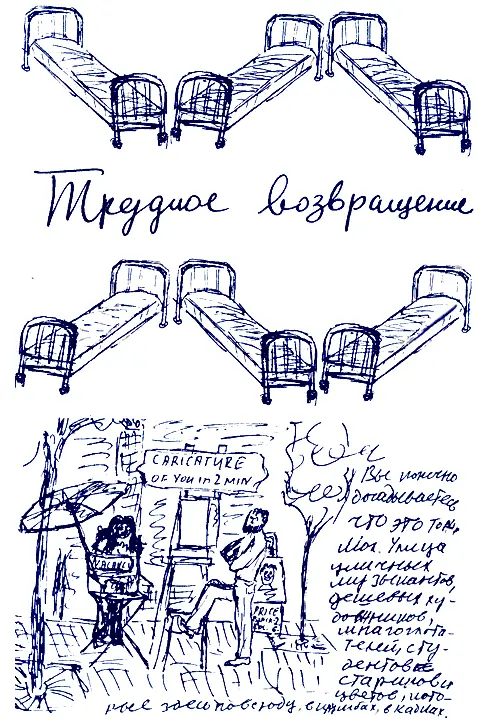 Трудное возвращение
CARICATURE
OF YOU in 2 MIN
PRICE
Вы конечно
догадываетесь
что это тоже,
Улица
уличных
музыкантов,
дешевых ху-
дожников,
шпагоглота-
телей, сту-
дентов
стариков и
цветов, кото-
рые здесь повсюду, в клумбах, в кадках.